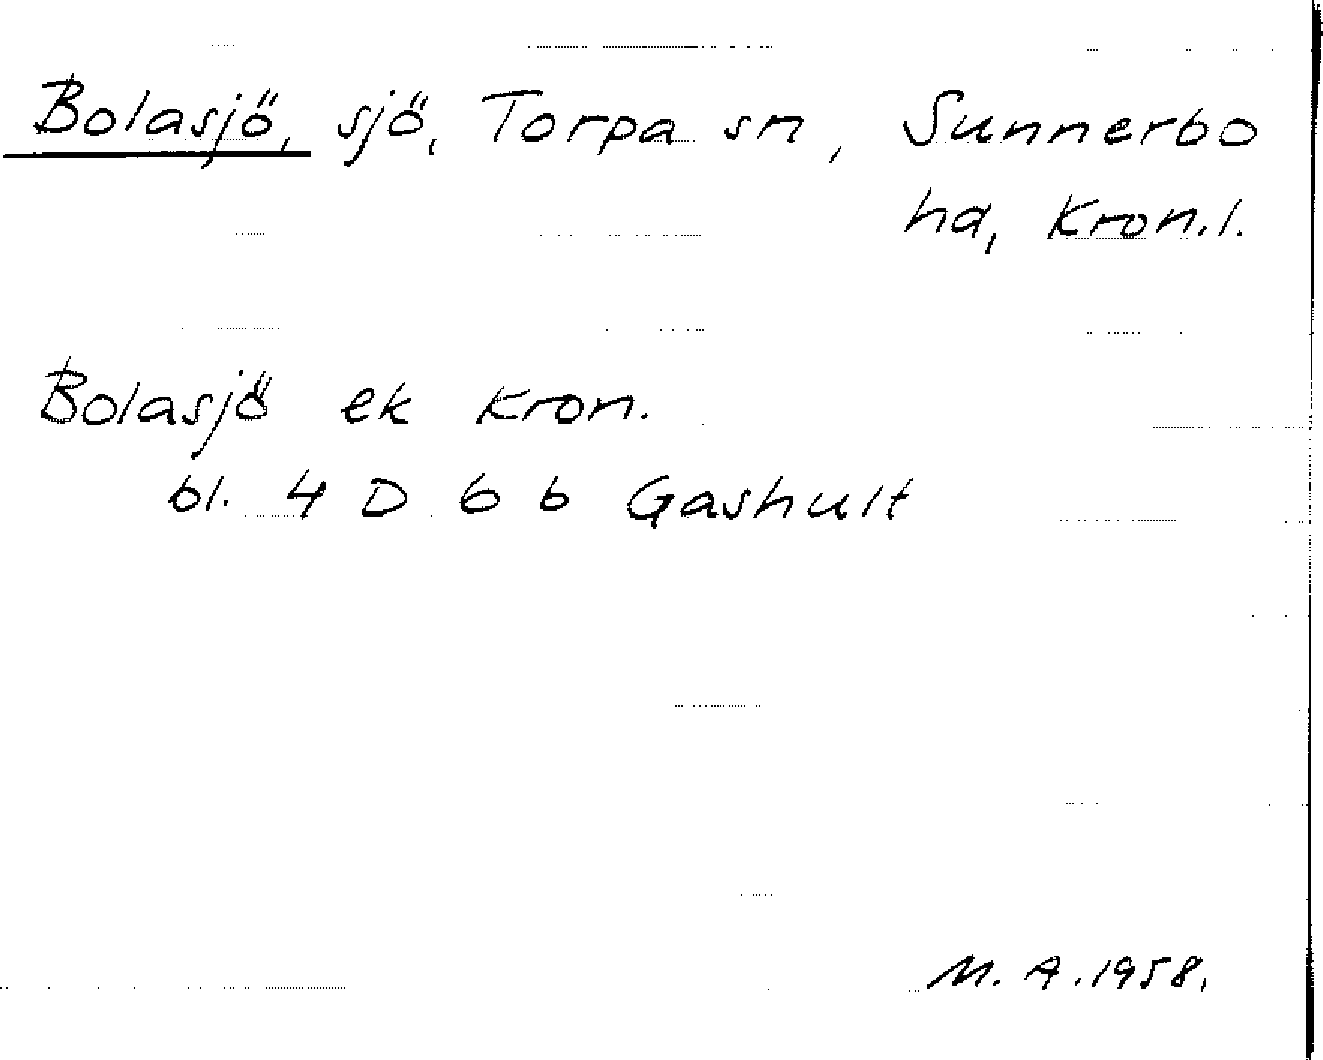 Bolasjö, sjö, Torpa sn, Sunnerbo
hd, Kron.l.
Bolasjö ek Kron.
bl. 4 D 6 b Gashult
M. A. 1958.